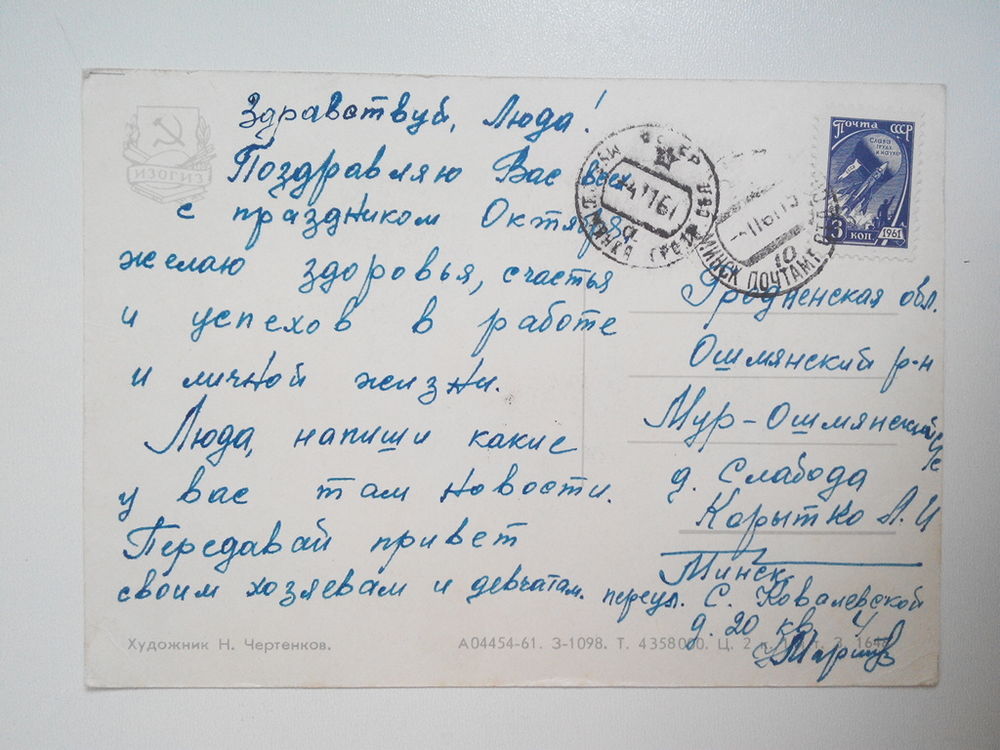 Здравствуй, Люда!
Поздравляю Вас всех
с праздником Октября,
желаю здоровья, счастья
и успехов в работе
и личной жизни.
Люда, напиши какие
у вас там новости.
Передавай привет
своим хозяевам и девчатам.
ИЗОГИЗ
Художник Н. Чертенков.
Почта СССР
Слава
труду
и науке
3 коп
1961
МИНСК ПОЧТАМТ
Гродненская обл.
Ошмянский р-н
Мур-Ошмянский с/с
д. Слабода
Корытко Л. И
Минск
переул. С. Ковалевской
д. 20 кв. 4
А04454-61. З-1098. Т. 4358000. Ц. 2